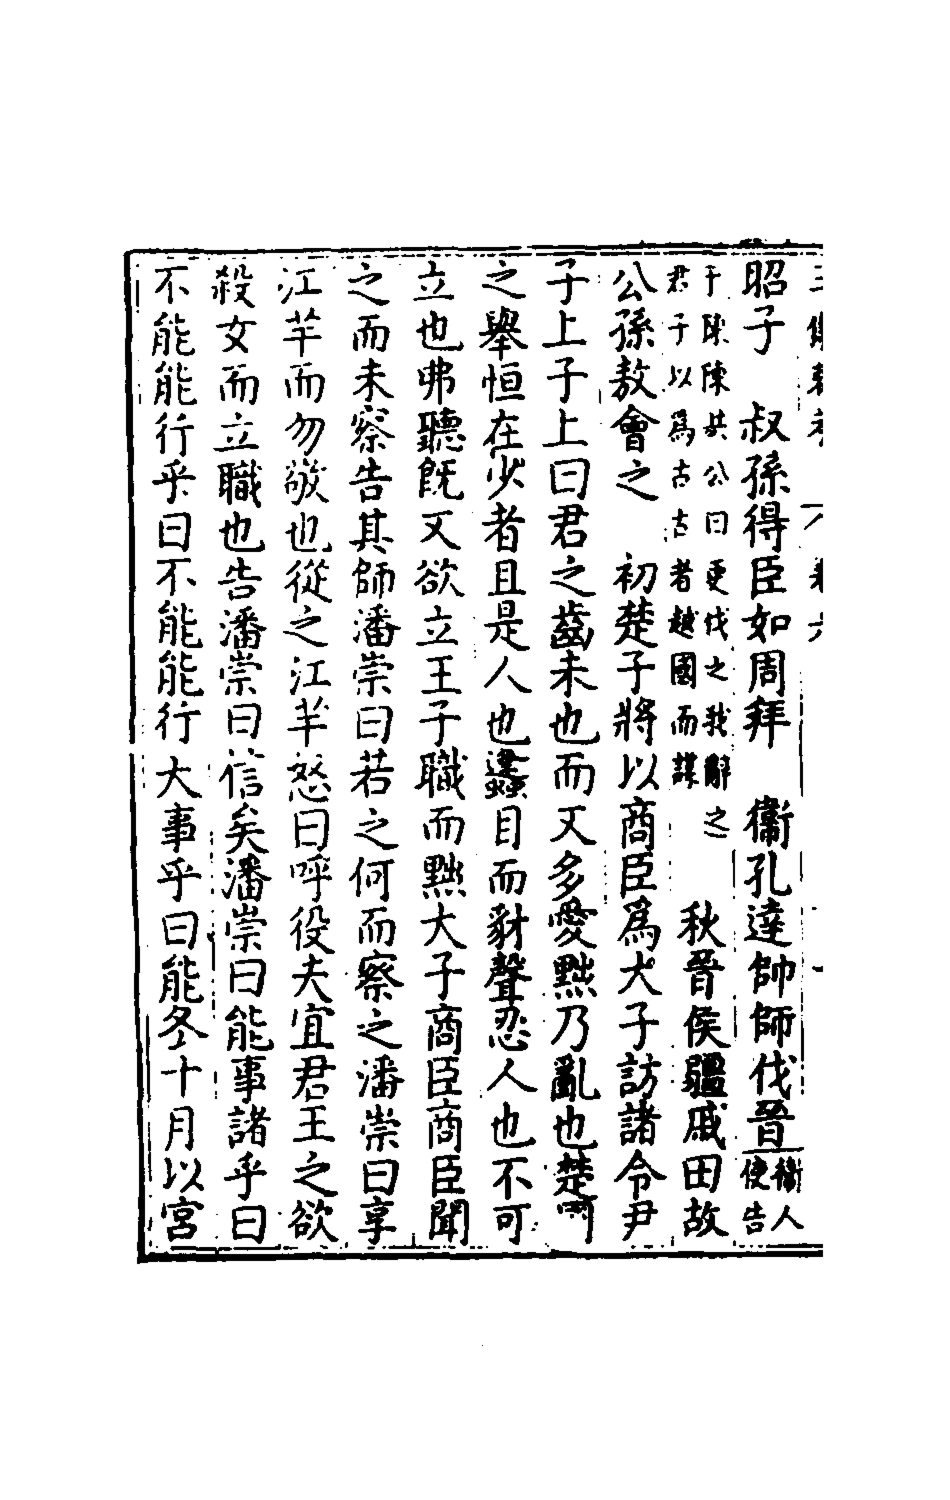 昭子　叔孫得臣如周拜　衞孔達帥師伐晉衞人使告
于陳陳共公曰更伐之我辭之君子以為古古者越國而謀　秋晉侯疆戚田故
公孫敖會之　初楚子將以商臣爲大子訪諸令尹
子上子上曰君之齒未也而又多愛黜乃亂也楚國
之舉恒在少者且是人也蠭目而豺聲忍人也不可
立也弗聽旣又欲立王子職而黜大子商臣商臣聞
之而未察告其師潘崇曰若之何而察之潘崇曰享
江芊而勿敬也從之江芊怒曰呼役夫宜君王之欲
殺女而立職也告潘崇曰信矣潘崇曰能事諸乎曰
不能能行乎曰不能能行大事乎曰能冬十月以宮